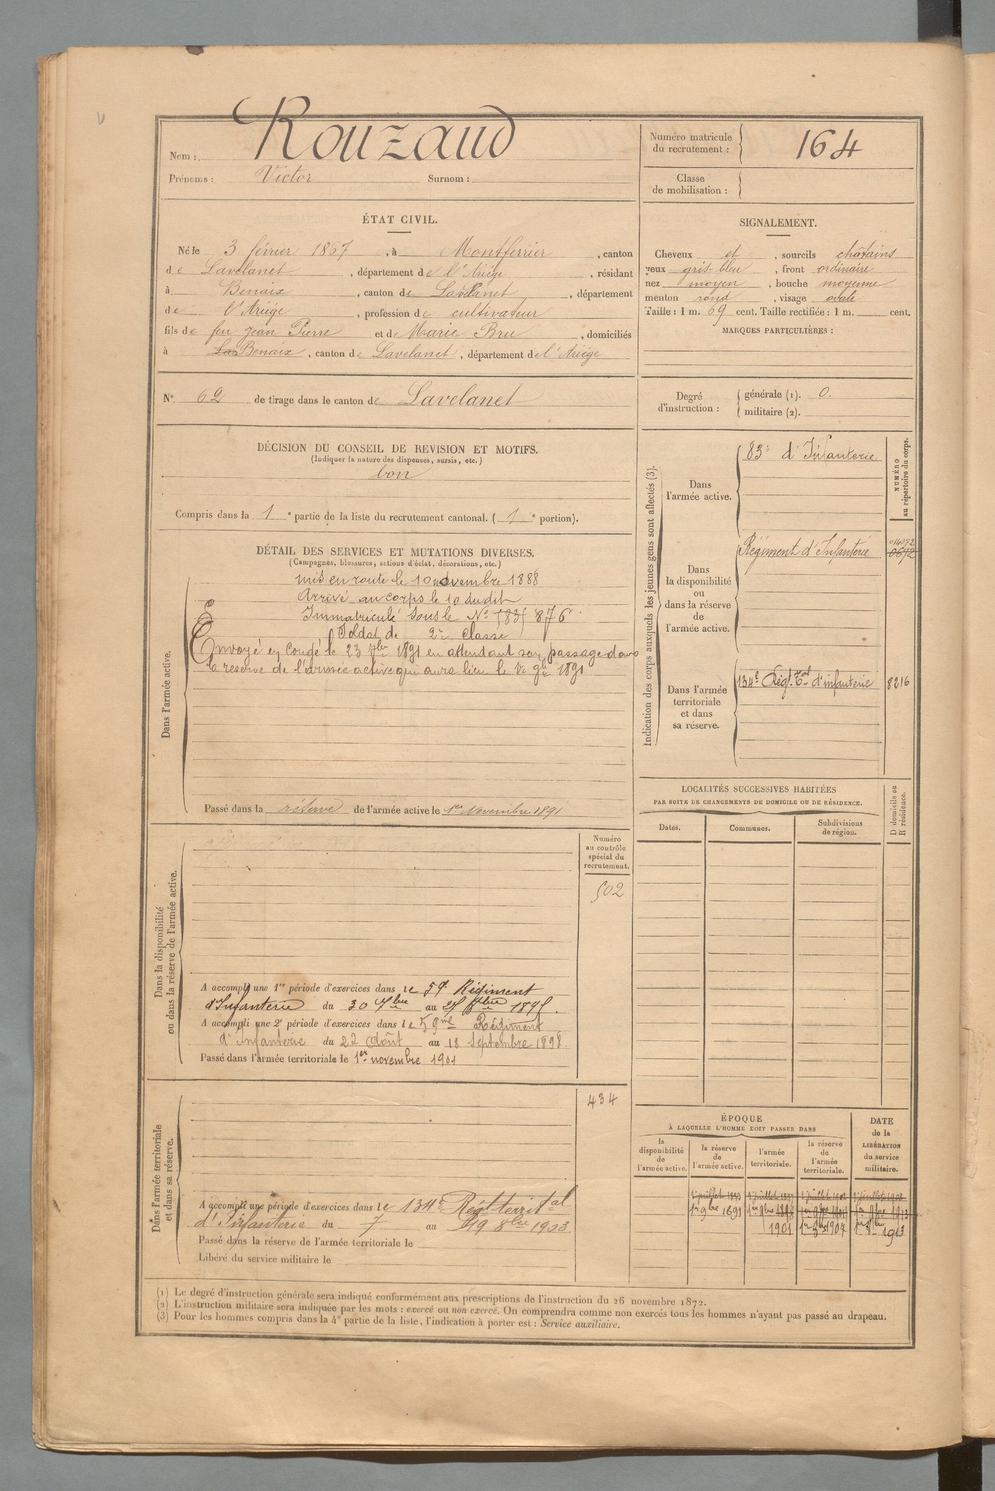 Nom : Rouzaud
Prénoms : Victor Surnom :
Numéro matricule du recrutement : 164
Classe de mobilisation :
ÉTAT CIVIL.
Né le 3 février 1867, à Montferrier, canton
de Lavelanet, département de l'Ariège, résidant
à Benaix, canton de Lavelanet, département
de l'Ariège, profession de cultivateur
fils de feu Jean Pierre et de Marie Bru, domiciliés
à Benaix, canton de Lavelanet, département de l'Ariège
SIGNALEMENT.
Cheveux et, sourcils châtains
yeux gris bleu, front ordinaire
nez moyen, bouche moyenne
menton rond, visage ovale
Taille : 1 m. 69 cent. Taille rectifiée : 1 m. cent.
MARQUES PARTICULIÈRES :
N° 62 de tirage dans le canton de Lavelanet
Degré d'instruction : générale (1). 0.
militaire (2).
DÉCISION DU CONSEIL DE REVISION ET MOTIFS.
(Indiquer la nature des dispenses, sursis, etc.)
bon
Compris dans la 1e partie de la liste du recrutement cantonal. (1e portion).
DÉTAIL DES SERVICES ET MUTATIONS DIVERSES.
(Campagnes, blessures, actions d'éclat, décorations, etc.)
Dans l'armée active.
mis en route le 10 novembre 1888
Arrivé au corps le 10 dudit
Immatriculé sous le N° 876
Soldat de 2e classe
Envoyé en congé le 23 7bre 1891 en attendant son passage dans
la réserve de l'armée active qui aura lieu le 1er 9bre 1891
Passé dans la réserve de l'armée active le 1er Novembre 1891
Indication des corps auxquels les jeunes gens sont affectés (3).
NUMÉRO au répertoire du corps.
Dans l'armée active.
83e d'Infanterie
Dans la disponibilité ou dans la réserve de l'armée active.
Régiment d'Infanterie
Dans l'armée territoriale et dans sa réserve.
134e Régt Tal d'infanterie 8216
LOCALITÉS SUCCESSIVES HABITÉES
PAR SUITE DE CHANGEMENTS DE DOMICILE OU DE RÉSIDENCE.
Dates. Communes. Subdivisions de région.
D domicile ou R résidence.
Dans la disponibilité ou dans la réserve de l'armée active.
Numéro au contrôle spécial du recrutement.
502
A accompli une 1re période d'exercices dans le 59 Régiment
d'Infanterie du 30 7bre au
A accompli une 2e période d'exercices dans le 59me Régiment
d'Infanterie du 22 août au 18 Septembre 1898
Passé dans l'armée territoriale le 1er novembre 1901
Dans l'armée territoriale et dans sa réserve.
434
A accompli une période d'exercices dans le 134e Régt territal
d'Infanterie du 7 au 19 8bre 1903
Passé dans la réserve de l'armée territoriale le
Libéré du service militaire le
ÉPOQUE
À LAQUELLE L'HOMME DOIT PASSER DANS
la disponibilité de l'armée active.
la réserve de l'armée active.
l'armée territoriale.
la réserve de l'armée territoriale.
DATE de la LIBÉRATION du service militaire.
1er 9bre 1891
1901
(1) Le degré d'instruction générale sera indiqué conformément aux prescriptions de l'instruction du 26 novembre 1872.
(2) L'instruction militaire sera indiquée par les mots : exercé ou non exercé. On comprendra comme non exercés tous les hommes n'ayant pas passé au drapeau.
(3) Pour les hommes compris dans la 4e partie de la liste, l'indication à porter est : Service auxiliaire.